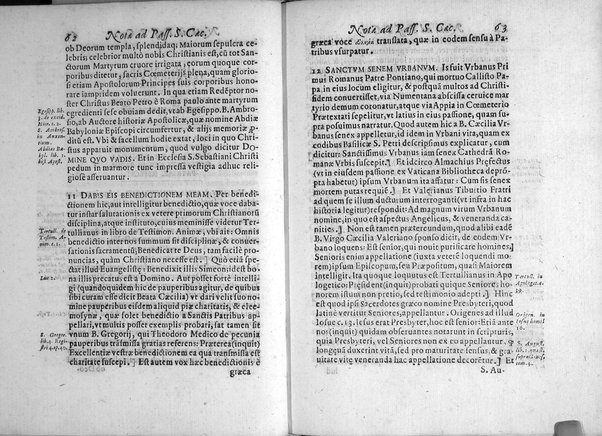 62 Notæ ad Pass. S. Cæc.
ob Deorum templa, splendidaq; Maiorum sepulcra ce-
lebris, celebrior multò nobis Christianis est, cũ tot San-
ctorum Martyrum cruore irrigata, eorum quoque cor-
poribus ditetur, sacris Cœmeterijs plena, quam gloriosi
etiam Apostolorum Principes suis corporibus exorna-
re iampridem voluerunt. In qua etiam Redẽptor no-
ster Christus Beato Petro è Roma paulo ante martyrium
egredienti sese obuiam dedit, vnde Egesippo B. Ambro-
sio, ab Auctore historiæ Apostolicæ, quæ nomine Abdiæ
Babyloniæ Episcopi circumfertur, & alijs memoriæ ꝓ-
ditũ est. Vbi & sacellum hodie extat, loci in quo Chri-
stus apparuit monumentum, quod vulgo dicitur DO-
MINE QVO VADIS. Et in Ecclesia S. Sebastiani Christi
pedum in marmore tunc impressa vestigia adhuc reli-
giosè asseruantur.
Egesip. lib.
3. de excid.
Abdias Ba-
byl. lib. 1.
11 DABIS EIS BENEDICTIONEM MEAM. Per bene-
dictionem hic, aut intelligitur benedictio, quæ voce daba-
tur instar salutationis ex vetere primorum Christianorũ
disciplina, atque instituto, cuius meminisse videtur Ter-
tullianus in libro de Testimon. Animæ, vbi ait: Omnis
benedictio inter nos summum sit disciplinæ, & conuer-
sationis sacramentũ, Benedicat te Deus, tam facilè pro-
nuncias, quàm Christiano necesse est. ] Quò etiã spe-
ctat illud Euangelistæ: Benedixit illis Simeon: idest bo-
na illis precatus est à Domino. Aut posset fortè intelli-
gi (quandoquidem hic de pauperibus agitur, de quibus
sibi curam esse dicit Beata Cæcilia) vt dari velit suo no-
mine pauperibus eisdem aliquid piæ charitatis, & elee-
mosynæ, quæ solet benedictio à Sanctis Patribus ap-
pellari, vt multis posset exemplis probari, sat tamen sit
vnum B. Gregorij, qui Theodoro Medico de pecunia
pauperibus trãsmissa gratias referens: Præterea (inquit)
Excellentiæ vestræ benedictionem ea qua transmissa est
charitate suscepi. ] Est autem vox hæc benedictionis è
græca
Tertull. de
Testim. A-
nim.
Luc. 2.
S. Gregor.
63 Notæ ad Pass. S. Cæc.
græca voce translata, quæ in eodem sensu à Pa-
tribus vsurpatur.
12 SANCTVM SENEM VRBANVM. Is fuit Vrbanus Pri-
mus Romanus Patre Pontiano, qui mortuo Callisto Pa-
pa, in eius locum eligitur, & postquam multos ad Christi
fidem conuertisset, via Numentana abscissa ceruice mar-
tyrio demum coronatur, atque via Appia in Cœmeterio
Prætextati sepelitur, vt latius in eius passione, quam su-
pra posuimus narratur. Quod autem hic a B. Cæcilia Vr-
banus senex appelletur, id idem in Vrbani vita, quam ex
codicibus Basilicæ S. Petri descripsimus explicatur, cum
dicitur: Sanctissimus Vrbanus senex Cathedrã Roma-
næ Vrbis suscepit. ] Et idcirco Almachius Præfectus
(vt in eiusdem passione ex Vaticana Bibliotheca depró-
pta habetur) ipsum Vrbanum ita affatur: Cum sis senex
mortem putas requiei. ] Et Valerianus Tiburtio Fratri
ad quem se illum ducturum interroganti (vt infra in hac
historia legitur) respondit: Ad magnum virum Vrbanum
nomine, in quo est aspectus Angelicus, & veneranda ca-
nities. ] Non est tamen omittenda ratio, quam eadem
B. Virgo Cæcilia Valeriano sponso dicit, de eodem Vr-
bano loquens: Est senior, qui nouit purificare homines. ]
Senioris enim appellatione (iuxta veterẽ loquendi mo-
rem) ipsum Episcopum, seu Præpositum, quasi Maiorem
intelligit. Ita quoque loquitur & Tertullianus in Apo-
logetico: Præsident (inquit) probati quique Seniores: ho-
norem istum non pretio, sed testimonio adepti. ] Hinc
est quod ipsi Sacerdotes græco nomine Presbyteri, quod
latinè vertitur Seniores, appellantur. Origenes ad illud
Iosue c. 13. Iesus erat Presbyter, hoc est senior: Eriã ante
nos (inquit) quidam obseruantes notarunt in scripturis,
quia Presbyteri, vel Seniores non ex eo appellantur, ꝙ
longuã duxerint vita, sed pro maturitate sensus, & gra-
uitate vitæ veneranda hac appellatione decorẽtur. ] Et
S. Au-
Tertull. in
Apologet.
Origen. in
Iosue homil.
S. August.